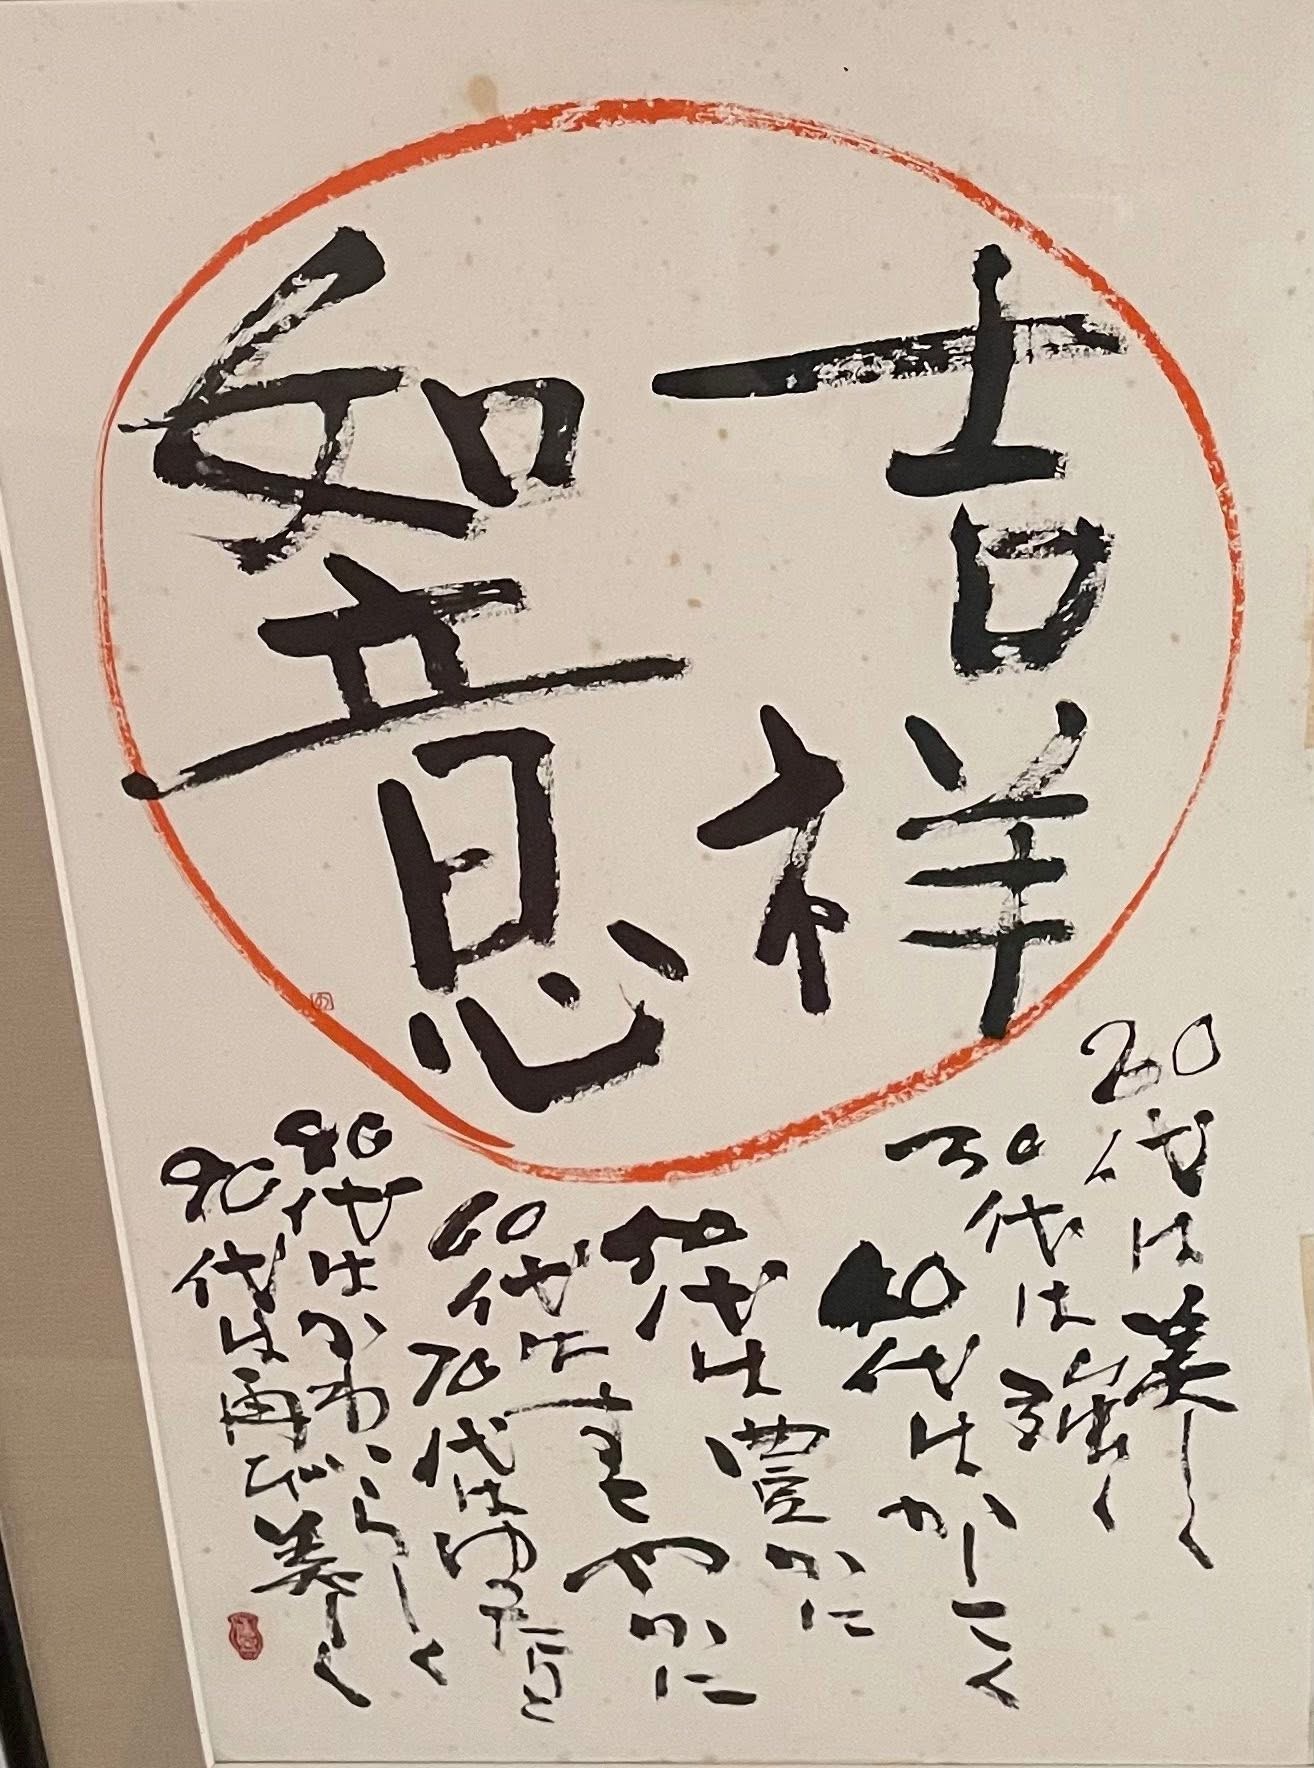 吉祥
如意
20代は美しく
30代は強く
40代はかしこく
50代は豊かに
60代はすこやかに
70代はゆったりと
80代はかわいらしく
90代は再び美しく